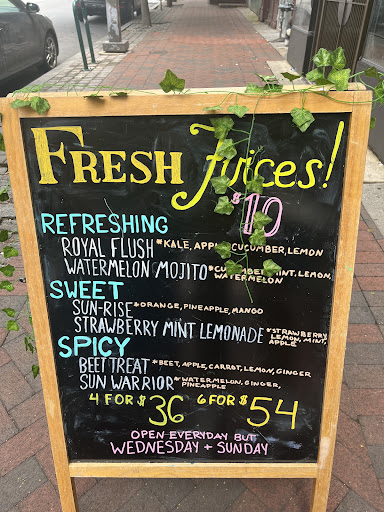 FRESH Juices!
$10
REFRESHING
ROYAL FLUSH *KALE, APPLE, CUCUMBER, LEMON
WATERMELON MOJITO *CUCUMBER, MINT, LEMON,
WATERMELON
SWEET
SUN-RISE *ORANGE, PINEAPPLE, MANGO
STRAWBERRY MINT LEMONADE *STRAWBERRY
LEMON, MINT,
APPLE
SPICY
BEET TREAT *BEET, APPLE, CARROT, LEMON, GINGER
SUN WARRIOR *WATERMELON, GINGER,
PINEAPPLE
4 FOR $36 6 FOR $54
OPEN EVERYDAY BUT
WEDNESDAY + SUNDAY